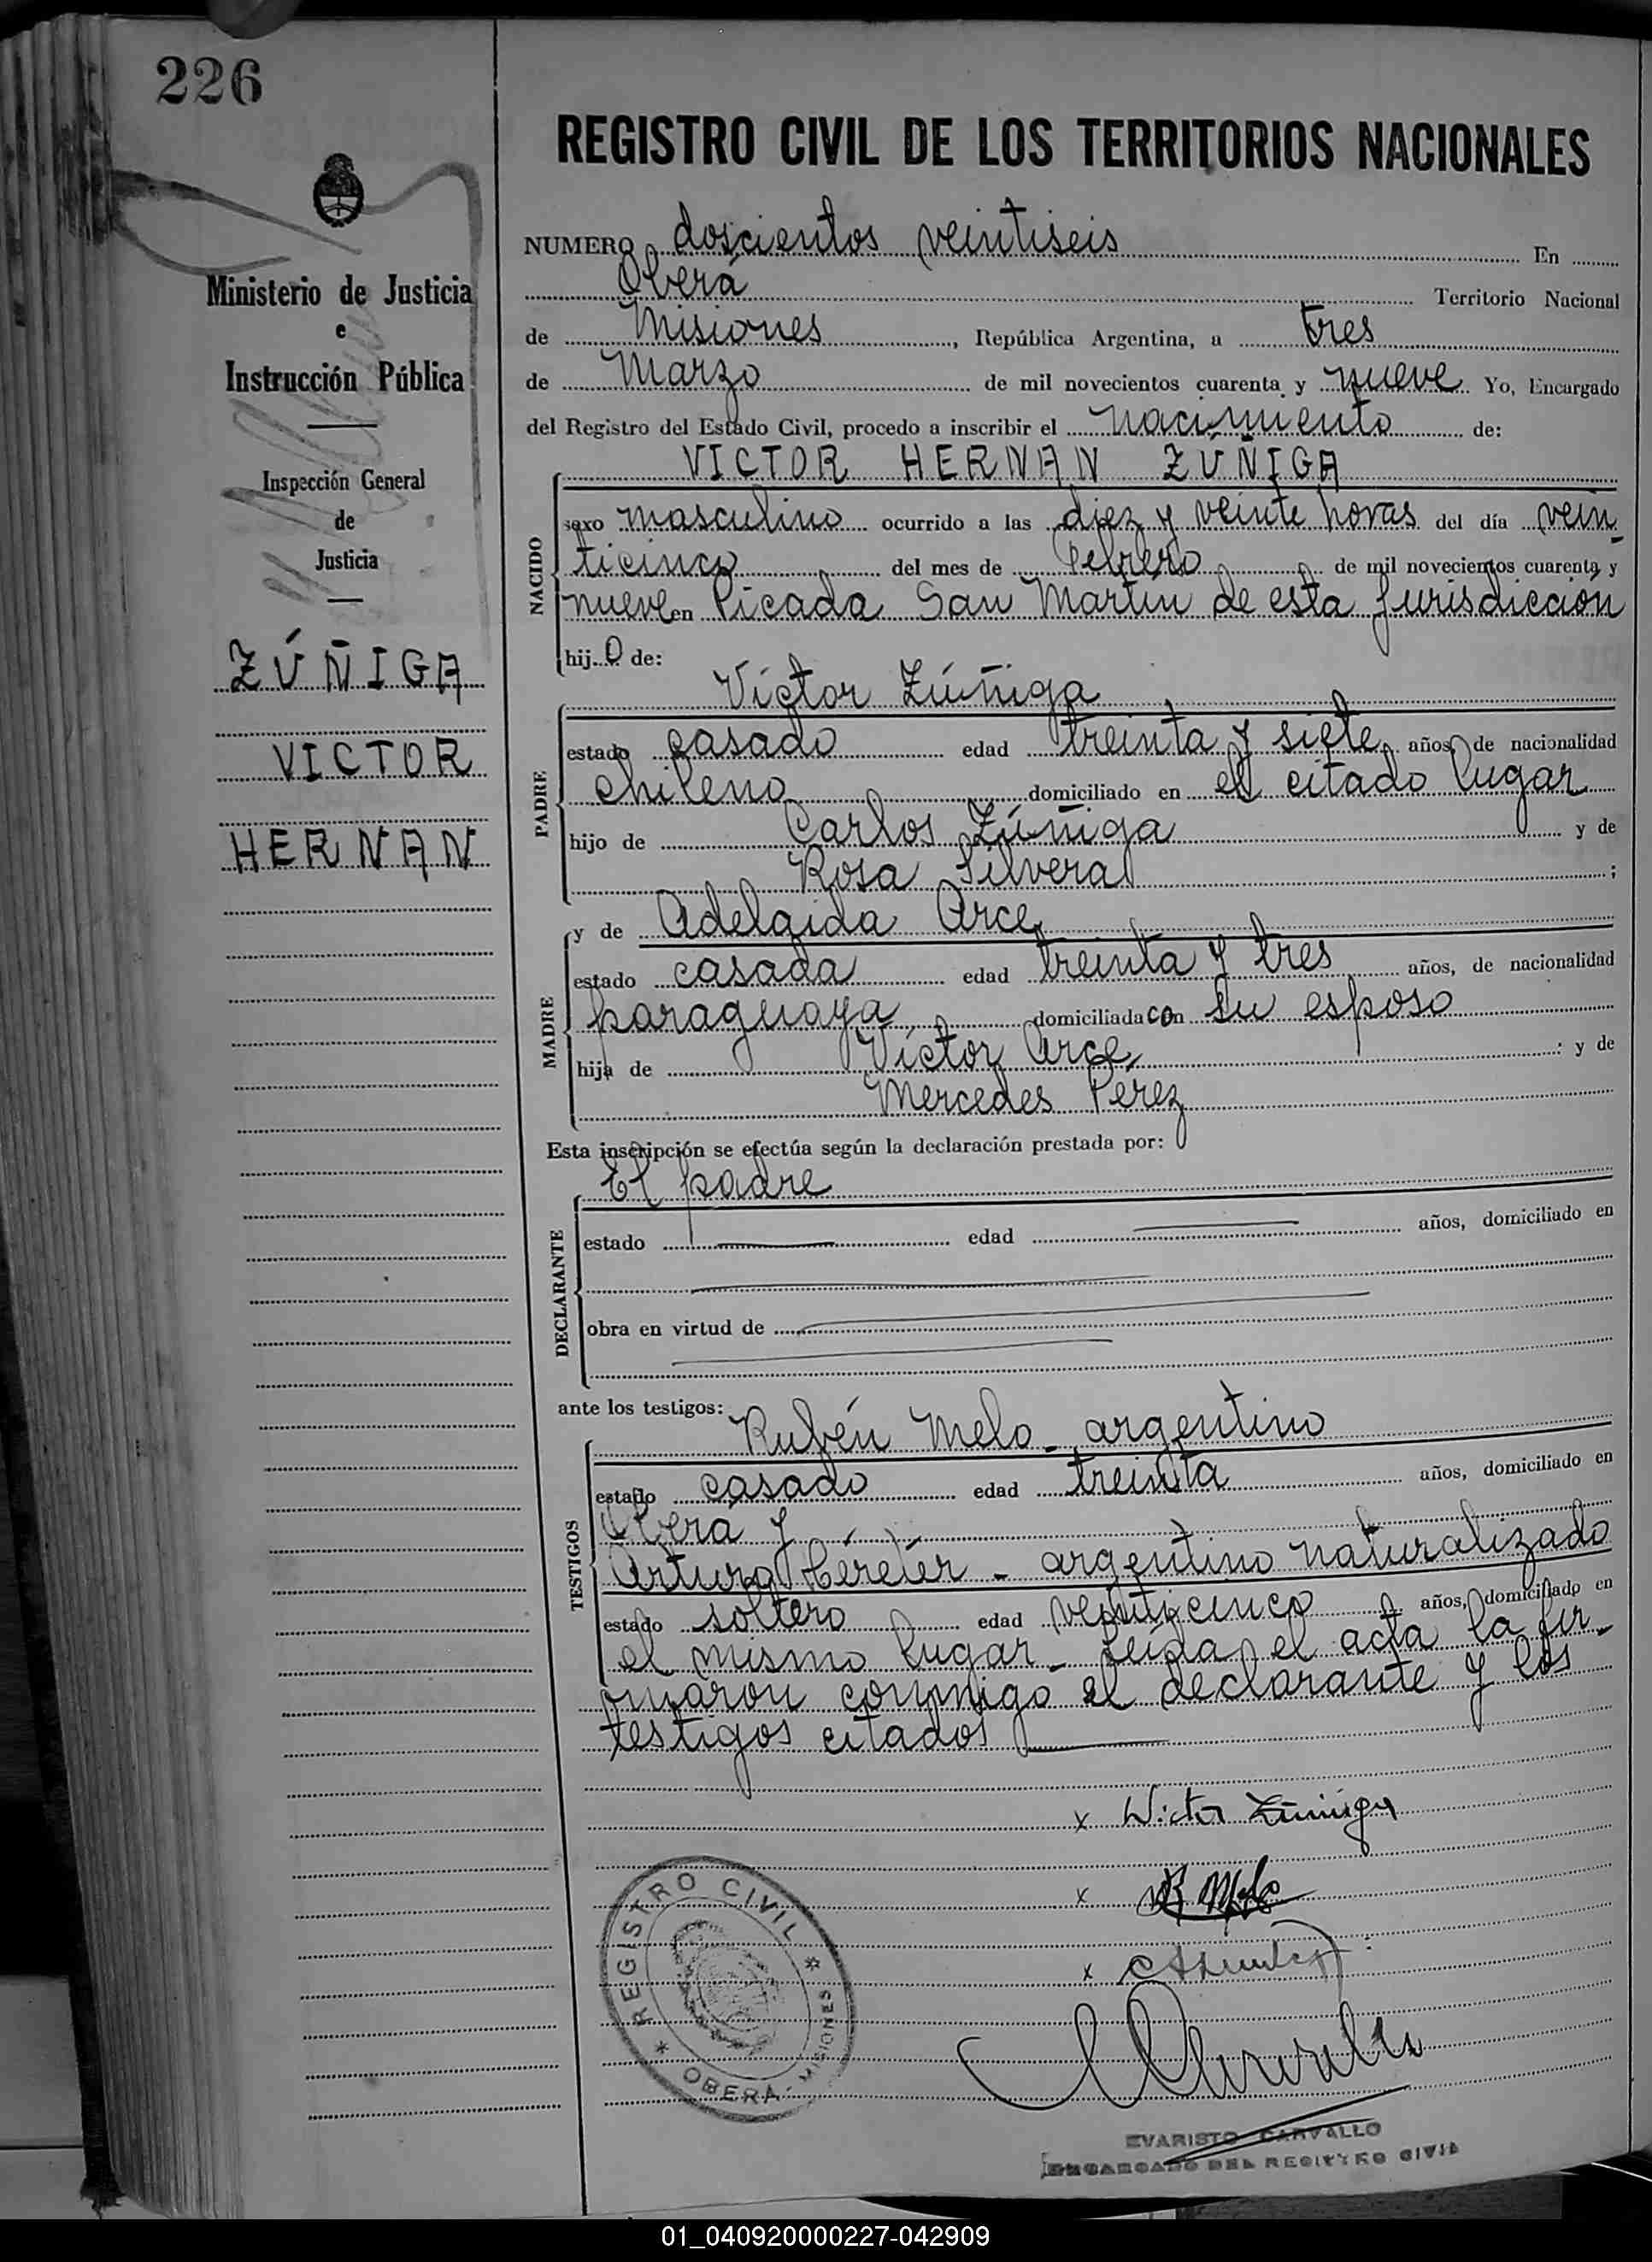 226
Ministerio de Justicia
e
Instrucción Pública
Inspección General
de
Justicia
ZÚÑIGA
VICTOR
HERNAN
REGISTRO CIVIL DE LOS TERRITORIOS NACIONALES
NUMERO doscientos veintiseis En
Oberá Territorio Nacional
de Misiones, República Argentina, a tres
de Marzo de mil novecientos cuarenta y nueve Yo, Encargado
del Registro del Estado Civil, procedo a inscribir el nacimiento de:
VICTOR HERNAN ZÚÑIGA
NACIDO
sexo masculino ocurrido a las diez y veinte horas del día vein
ticinco del mes de Febrero de mil novecientos cuarenta y
nueve en Picada San Martín de esta jurisdicción
hijo de:
Víctor Zúñiga
PADRE
estado casado edad treinta y siete años, de nacionalidad
chileno domiciliado en el citado lugar
hijo de Carlos Zúñiga y de
Rosa Silvera ;
MADRE
y de Adelaida Arce
estado casada edad treinta y tres años, de nacionalidad
paraguaya domiciliada con su esposo
hija de Víctor Arce : y de
Mercedes Pérez
Esta inscripción se efectúa según la declaración prestada por:
El padre
DECLARANTE
estado edad años, domiciliado en
obra en virtud de
ante los testigos:
TESTIGOS
Rubén Melo - argentino
estado casado edad treinta años, domiciliado en
Oberá y
Arturo - argentino naturalizado
estado soltero edad veinticinco años, domiciliado en
el mismo lugar - Leída el acta la fir-
maron conmigo el declarante y los
testigos citados
x Victor Zúniga
x R Melo
x
REGISTRO CIVIL
OBERA - MISIONES
EVARISTO CARVALLO
ENCARGADO DEL REGISTRO CIVIL
01_040920000227-042909